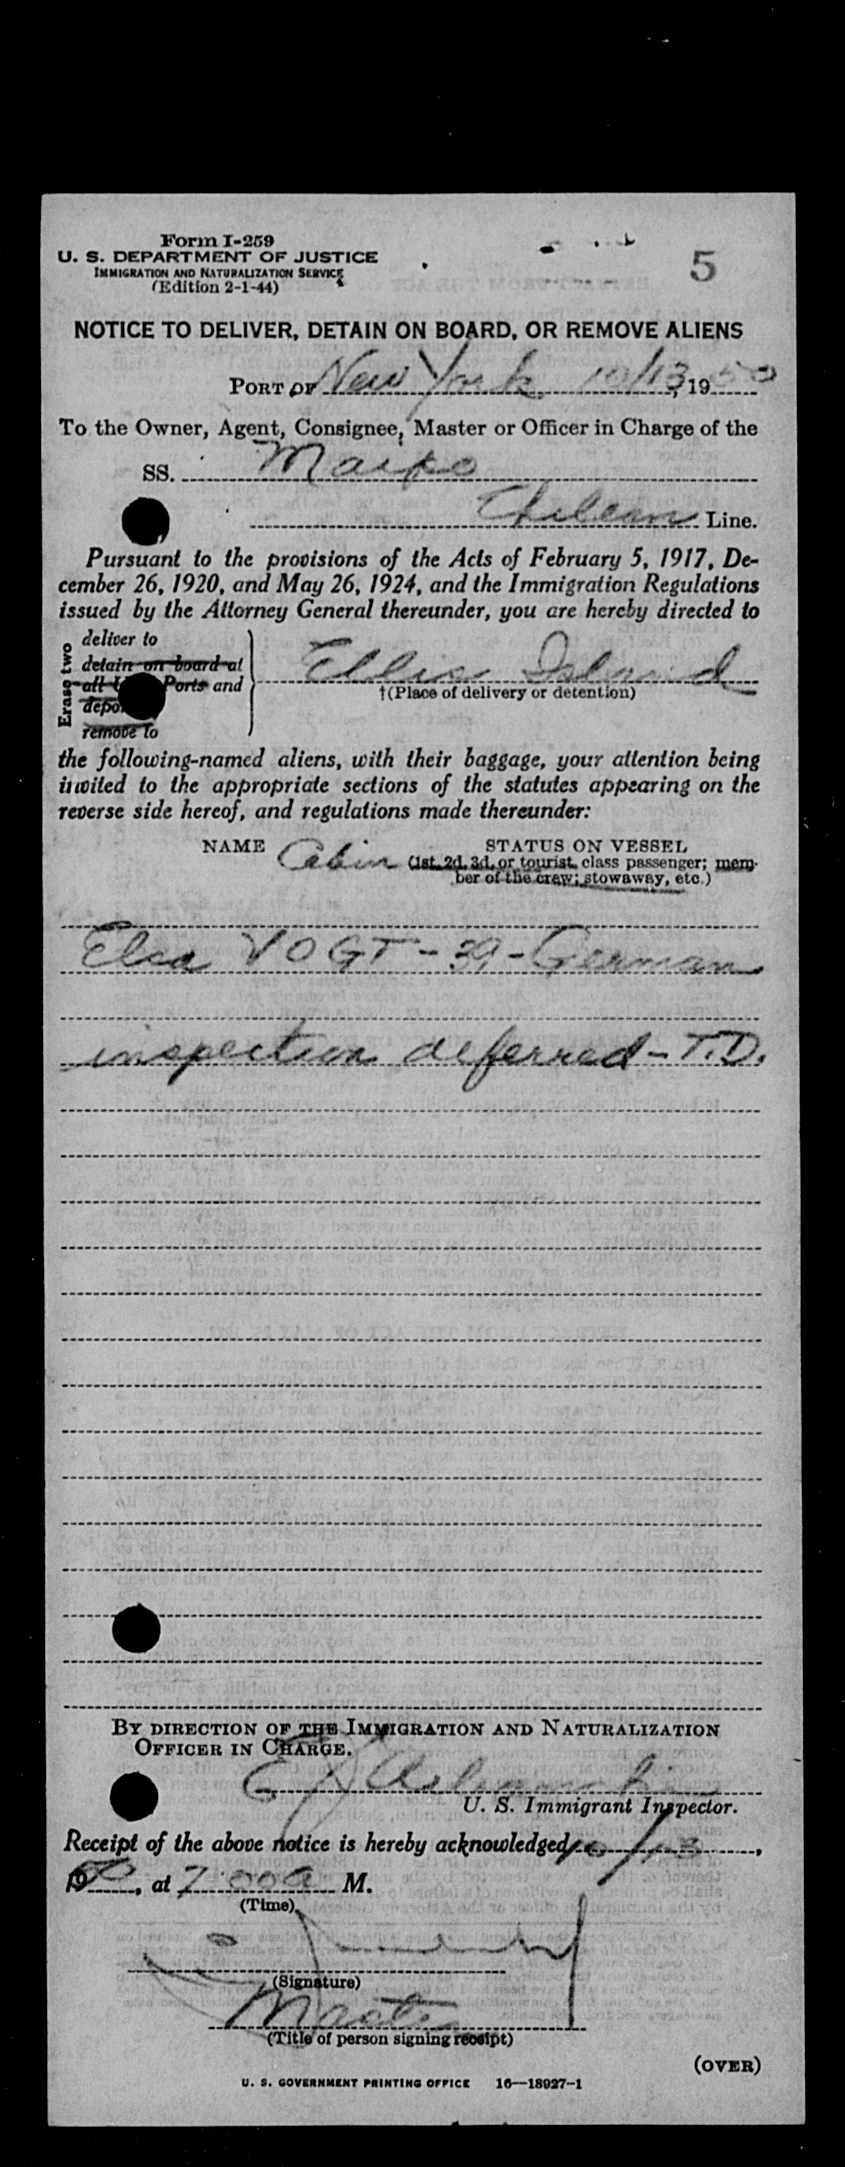 5
Form I-259
U. S. DEPARTMENT OF JUSTICE
IMMIGRATION AND NATURALIZATION SERVICE
(Edition 2-1-44)
NOTICE TO DELIVER, DETAIN ON BOARD, OR REMOVE ALIENS
PORT OF New York, 10/13, 1950
To the Owner, Agent, Consignee, Master or Officer in Charge of the
SS. Maipo
Chilean Line.
Pursuant to the provisions of the Acts of February 5, 1917, De-
cember 26, 1920, and May 26, 1924, and the Immigration Regulations
issued by the Attorney General thereunder, you are hereby directed to
Erase two
deliver to
detain on board at
all U Ports and
depo
remove to
Ellis Island
†(Place of delivery or detention)
the following-named aliens, with their baggage, your attention being
invited to the appropriate sections of the statutes appearing on the
reverse side hereof, and regulations made thereunder:
NAME Cabin STATUS ON VESSEL
(1st, 2d, 3d, or tourist, class passenger; mem-
ber of the crew; stowaway, etc.)
Elsa VOGT - 39 - German
inspection deferred - T.D.
BY DIRECTION OF THE IMMIGRATION AND NATURALIZATION
OFFICER IN CHARGE.
U. S. Immigrant Inspector.
Receipt of the above notice is hereby acknowledged 10/13,
1950, at 7:00 a M.
(Time)
(Signature)
Master
(Title of person signing receipt)
(OVER)
U. S. GOVERNMENT PRINTING OFFICE 16—18927-1